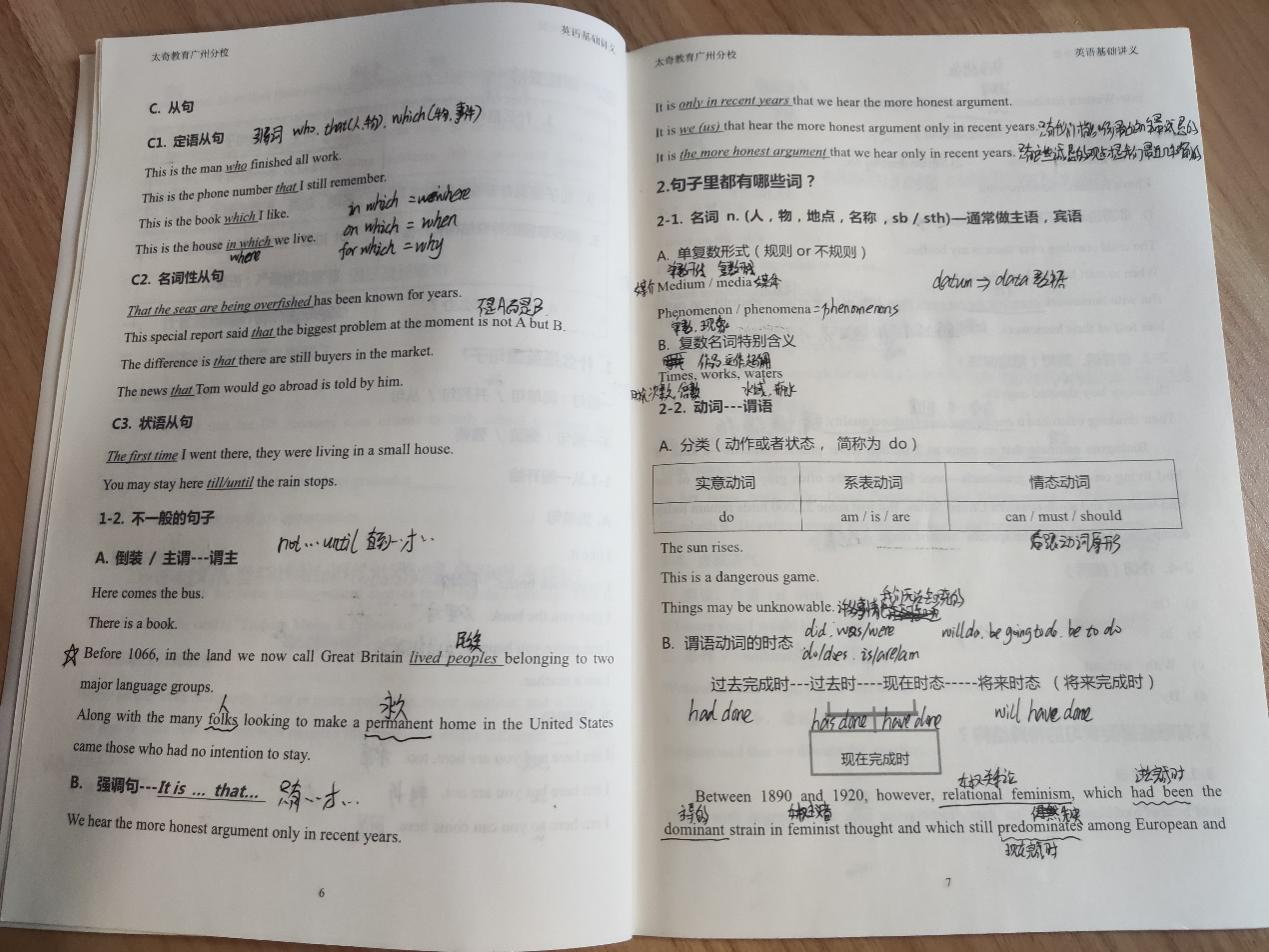 太奇教育广州分校
英语基础讲义
C. 从句
C1. 定语从句 引词 who, that(人、物), which(物、事件)
This is the man who finished all work.
This is the phone number that I still remember.
This is the book which I like.
in which = where
This is the house in which we live.
on which = when
where
for which = why
C2. 名词性从句
That the seas are being overfished has been known for years.
不是A而是B
This special report said that the biggest problem at the moment is not A but B.
The difference is that there are still buyers in the market.
The news that Tom would go abroad is told by him.
C3. 状语从句
The first time I went there, they were living in a small house.
You may stay here till/until the rain stops.
1-2. 不一般的句子
not…until 直到…才…
A. 倒装 / 主谓---谓主
Here comes the bus.
There is a book.
民族
☆ Before 1066, in the land we now call Great Britain lived peoples belonging to two
major language groups.
人 永久
Along with the many folks looking to make a permanent home in the United States
came those who had no intention to stay.
B. 强调句---It is … that… 只有…才…
We hear the more honest argument only in recent years.
6
太奇教育广州分校
英语基础讲义
It is only in recent years that we hear the more honest argument.
It is we (us) that hear the more honest argument only in recent years.
It is the more honest argument that we hear only in recent years.
2.句子里都有哪些词？
2-1. 名词 n. (人，物，地点，名称，sb / sth)—通常做主语，宾语
A. 单复数形式（规则 or 不规则）
媒介 Medium / media 媒介
datum ⇒ data 数据
Phenomenon / phenomena = phenomenons
单数 现象
B. 复数名词特别含义
Times, works, waters
时代、次数、倍数 水域
2-2. 动词---谓语
A. 分类（动作或者状态， 简称为 do）
实意动词 系表动词 情态动词
do am / is / are can / must / should
The sun rises.
后跟动词原形
This is a dangerous game.
Things may be unknowable.
B. 谓语动词的时态
did. was/were
will do. be going to do. be to do
do/does. is/are/am
过去完成时---过去时----现在时态-----将来时态 （将来完成时）
had done
has done have done
will have done
现在完成时
过去完成时
Between 1890 and 1920, however, relational feminism, which had been the
主导的
dominant strain in feminist thought and which still predominates among European and
现在完成时
7